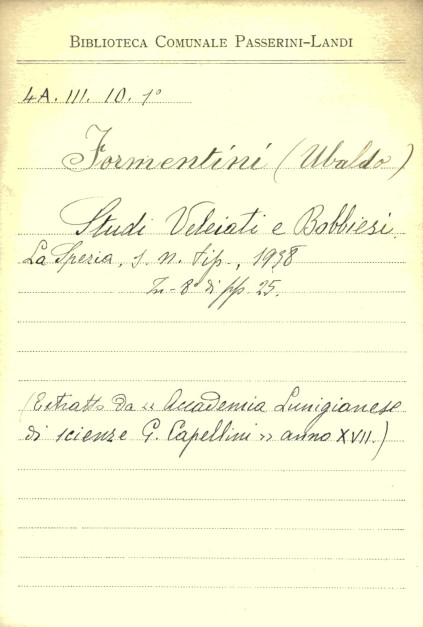 BIBLIOTECA COMUNALE PASSERINI-LANDI
4A. III. 10. 1°
Formentini (Ubaldo)
Studi Veleiati e Bobbiesi.
La Spezia, s. n. tip., 1938
In-8° di pp. 25.
(Estratto da « Accademia Lunigianese
di scienze G. Capellini » anno XVII.)